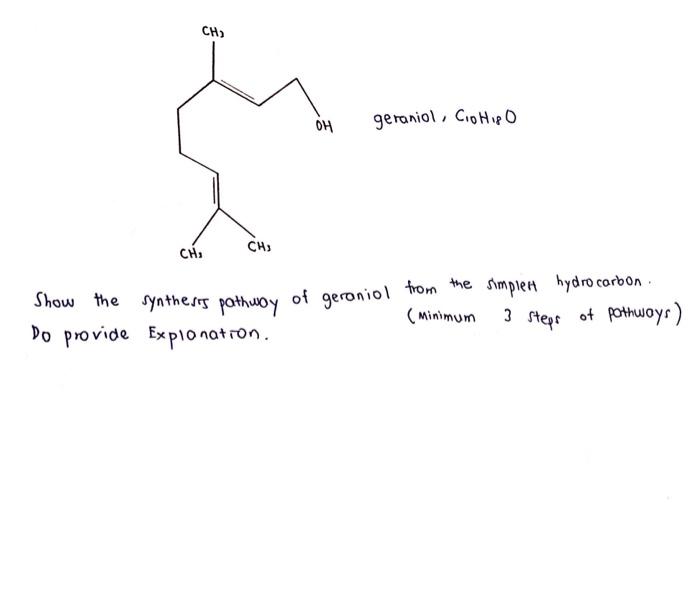 CH₃
OH
geraniol, C₁₀H₁₈O
CH₃
CH₃
Show the synthesis pathway of geraniol from the simplest hydrocarbon.
(Minimum 3 steps of pathways)
Do provide Explanation.